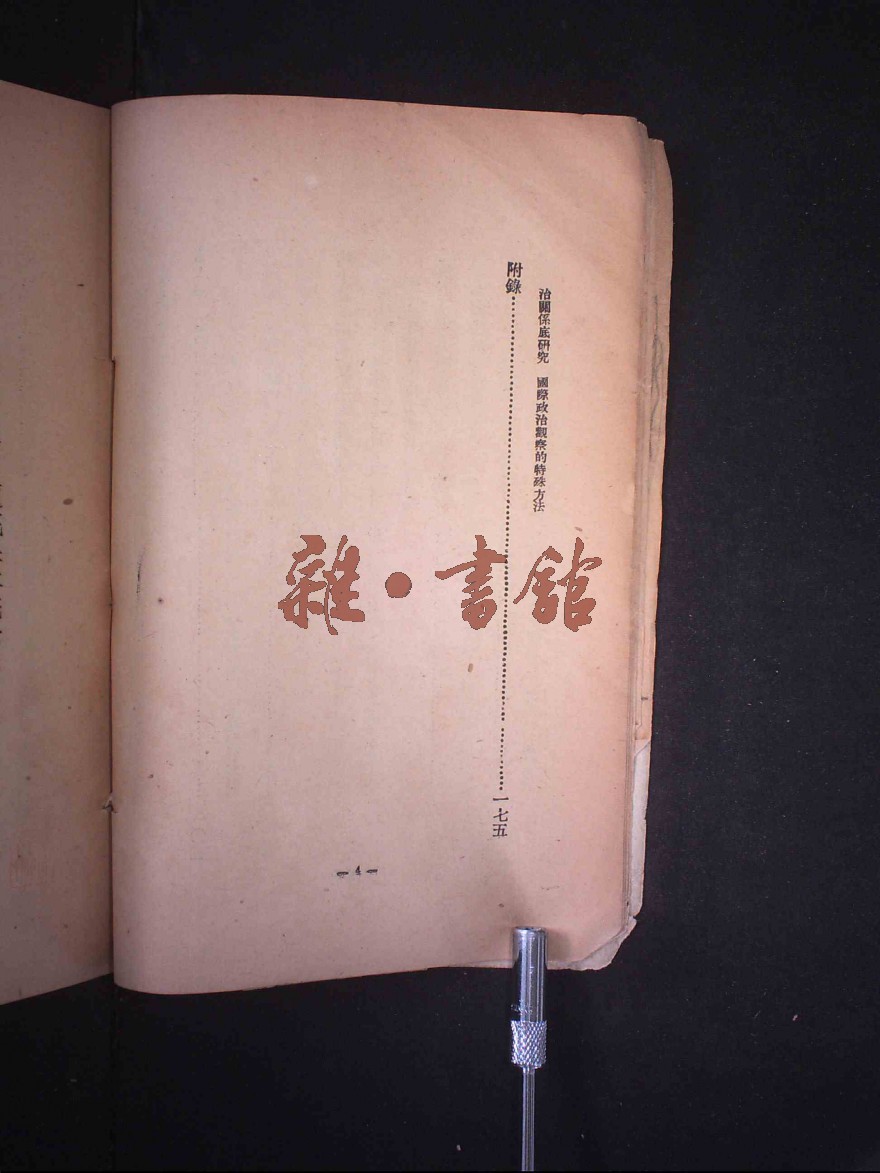 治關係底研究　國際政治觀察的特殊方法
附錄…………………………………………一七五
— 4 —
雜·書館